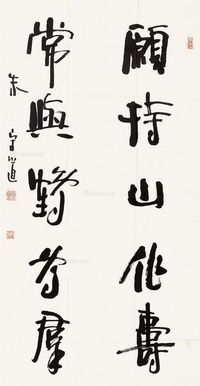 願持山作壽
常與鶴為群
朱守道